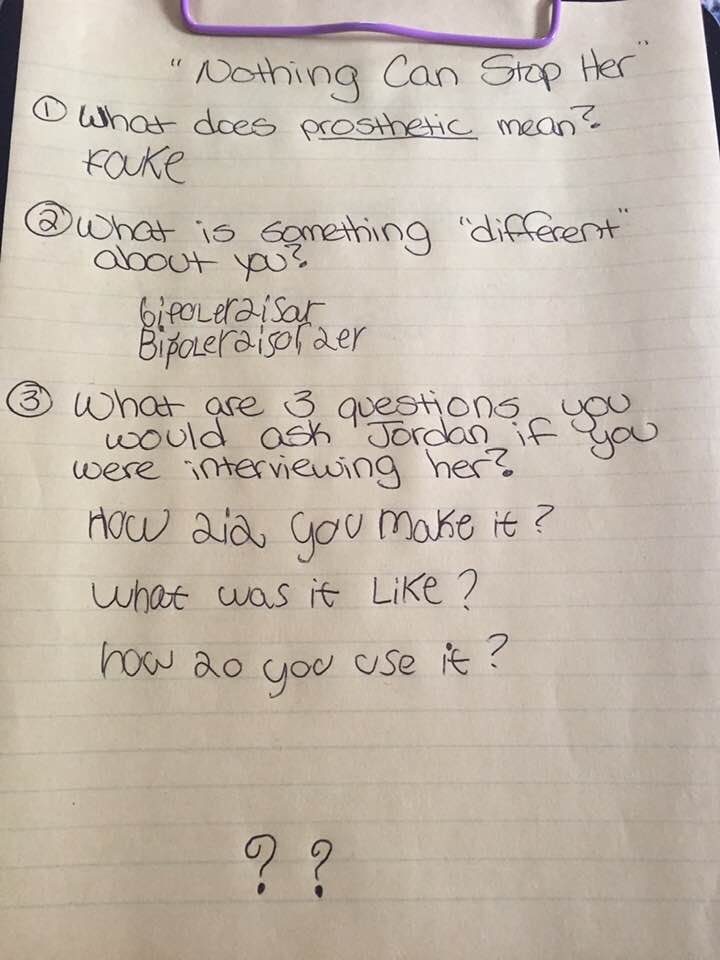 "Nothing Can Stop Her"
① What does prosthetic mean?
Fauke
② What is something "different"
about you?
bipolerdisar
Bipolerdisorder
③ What are 3 questions you
would ask Jordan if you
were interviewing her?
How did you make it?
What was it Like?
how do you use it?
? ?